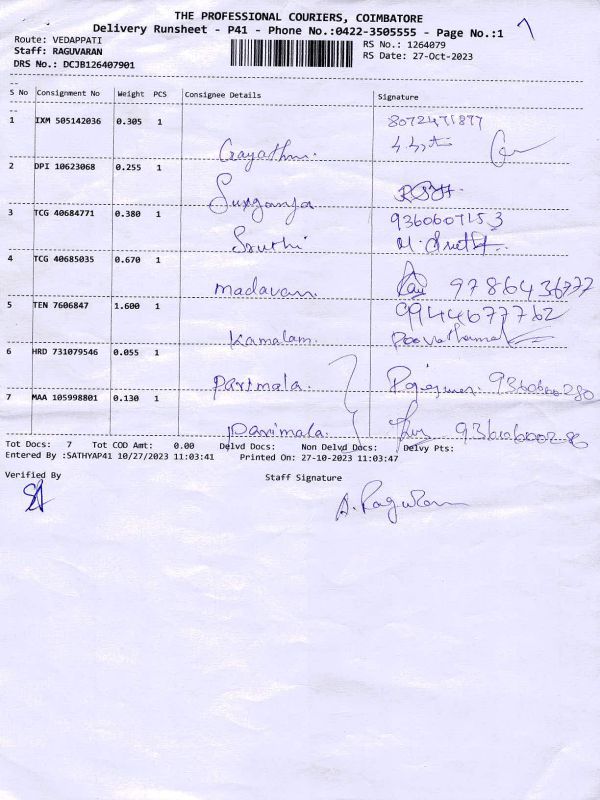 THE PROFESSIONAL COURIERS, COIMBATORE
Delivery Runsheet - P41 - Phone No.:0422-3505555 - Page No.:1
Route: VEDAPPATI
RS No.: 1264079
Staff: RAGUVARAN
RS Date: 27-Oct-2023
DRS No.: DCJB126407901
S No Consignment No Weight PCS Consignee Details Signature
1 IXM 505142036 0.305 1
Gayathri.
2 DPI 10623068 0.255 1
3 TCG 40684771 0.380 1 9360607153
Sruthi
4 TCG 40685035 0.670 1
Madavan. 9786436777
5 TEN 7606847 1.600 1 9944677762
Kamalam.
6 HRD 731079546 0.055 1
Parimala.
7 MAA 105998801 0.130 1
Parimala.
Tot Docs: 7 Tot COD Amt: 0.00 Delvd Docs: Non Delvd Docs: Delvy Pts:
Entered By :SATHYAP41 10/27/2023 11:03:41 Printed On: 27-10-2023 11:03:47
Verified By Staff Signature